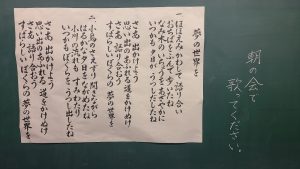 夢の世界を
一
ほほえみかわして語り合い
落ち葉を踏んで歩いたね
なみ木のいちょうをあざやかに
いつかも夕日がうつしだしたね
さあ 出かけよう
思い出のあふれる道をかけぬけ
さあ 語り合おう
すばらしいぼくらの夢の世界を
二
小鳥のさえずり聞きながら
はるかな夕日をながめたね
小川の流れも すみわたり
いつかもぼくらをうつし出したね
さあ 出かけよう
思い出のあふれる道をかけぬけ
さあ 語り合おう
すばらしいぼくらの夢の世界を
朝の会で
歌ってください。